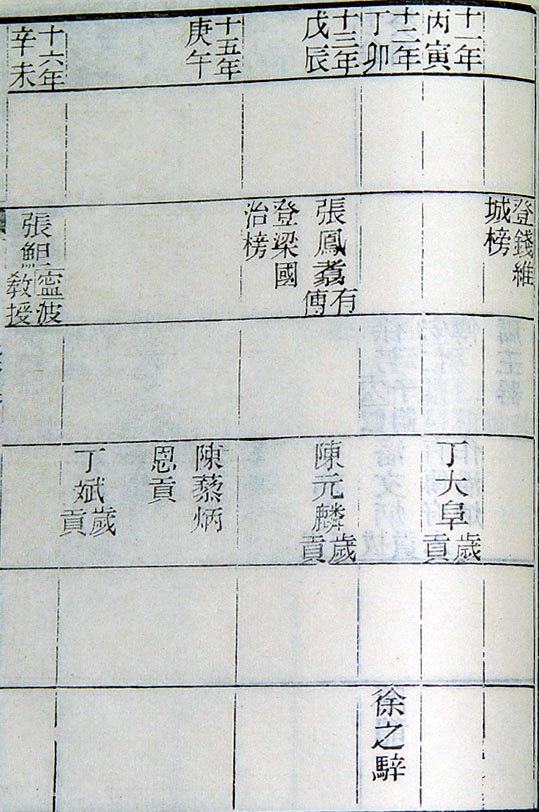 十一年
丙寅
十二年
丁卯
十三年
戊辰
十五年
庚午
十六年
辛未
登錢維
城榜
張鳳翥
有
傳
登梁國
治榜
張
寧波
教授
丁大阜
歲
貢
陳元麟
歲
貢
陳炳
恩貢
丁斌
歲
貢
徐之騂